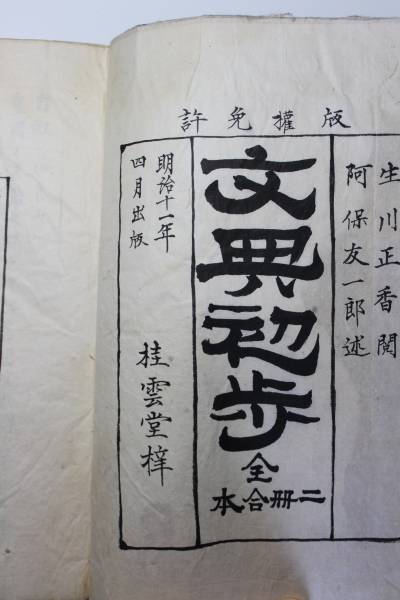 版權免許
生川正香閲
阿保友一郎述
文典初步
全
二冊合本
明治十一年
四月出版
桂雲堂梓